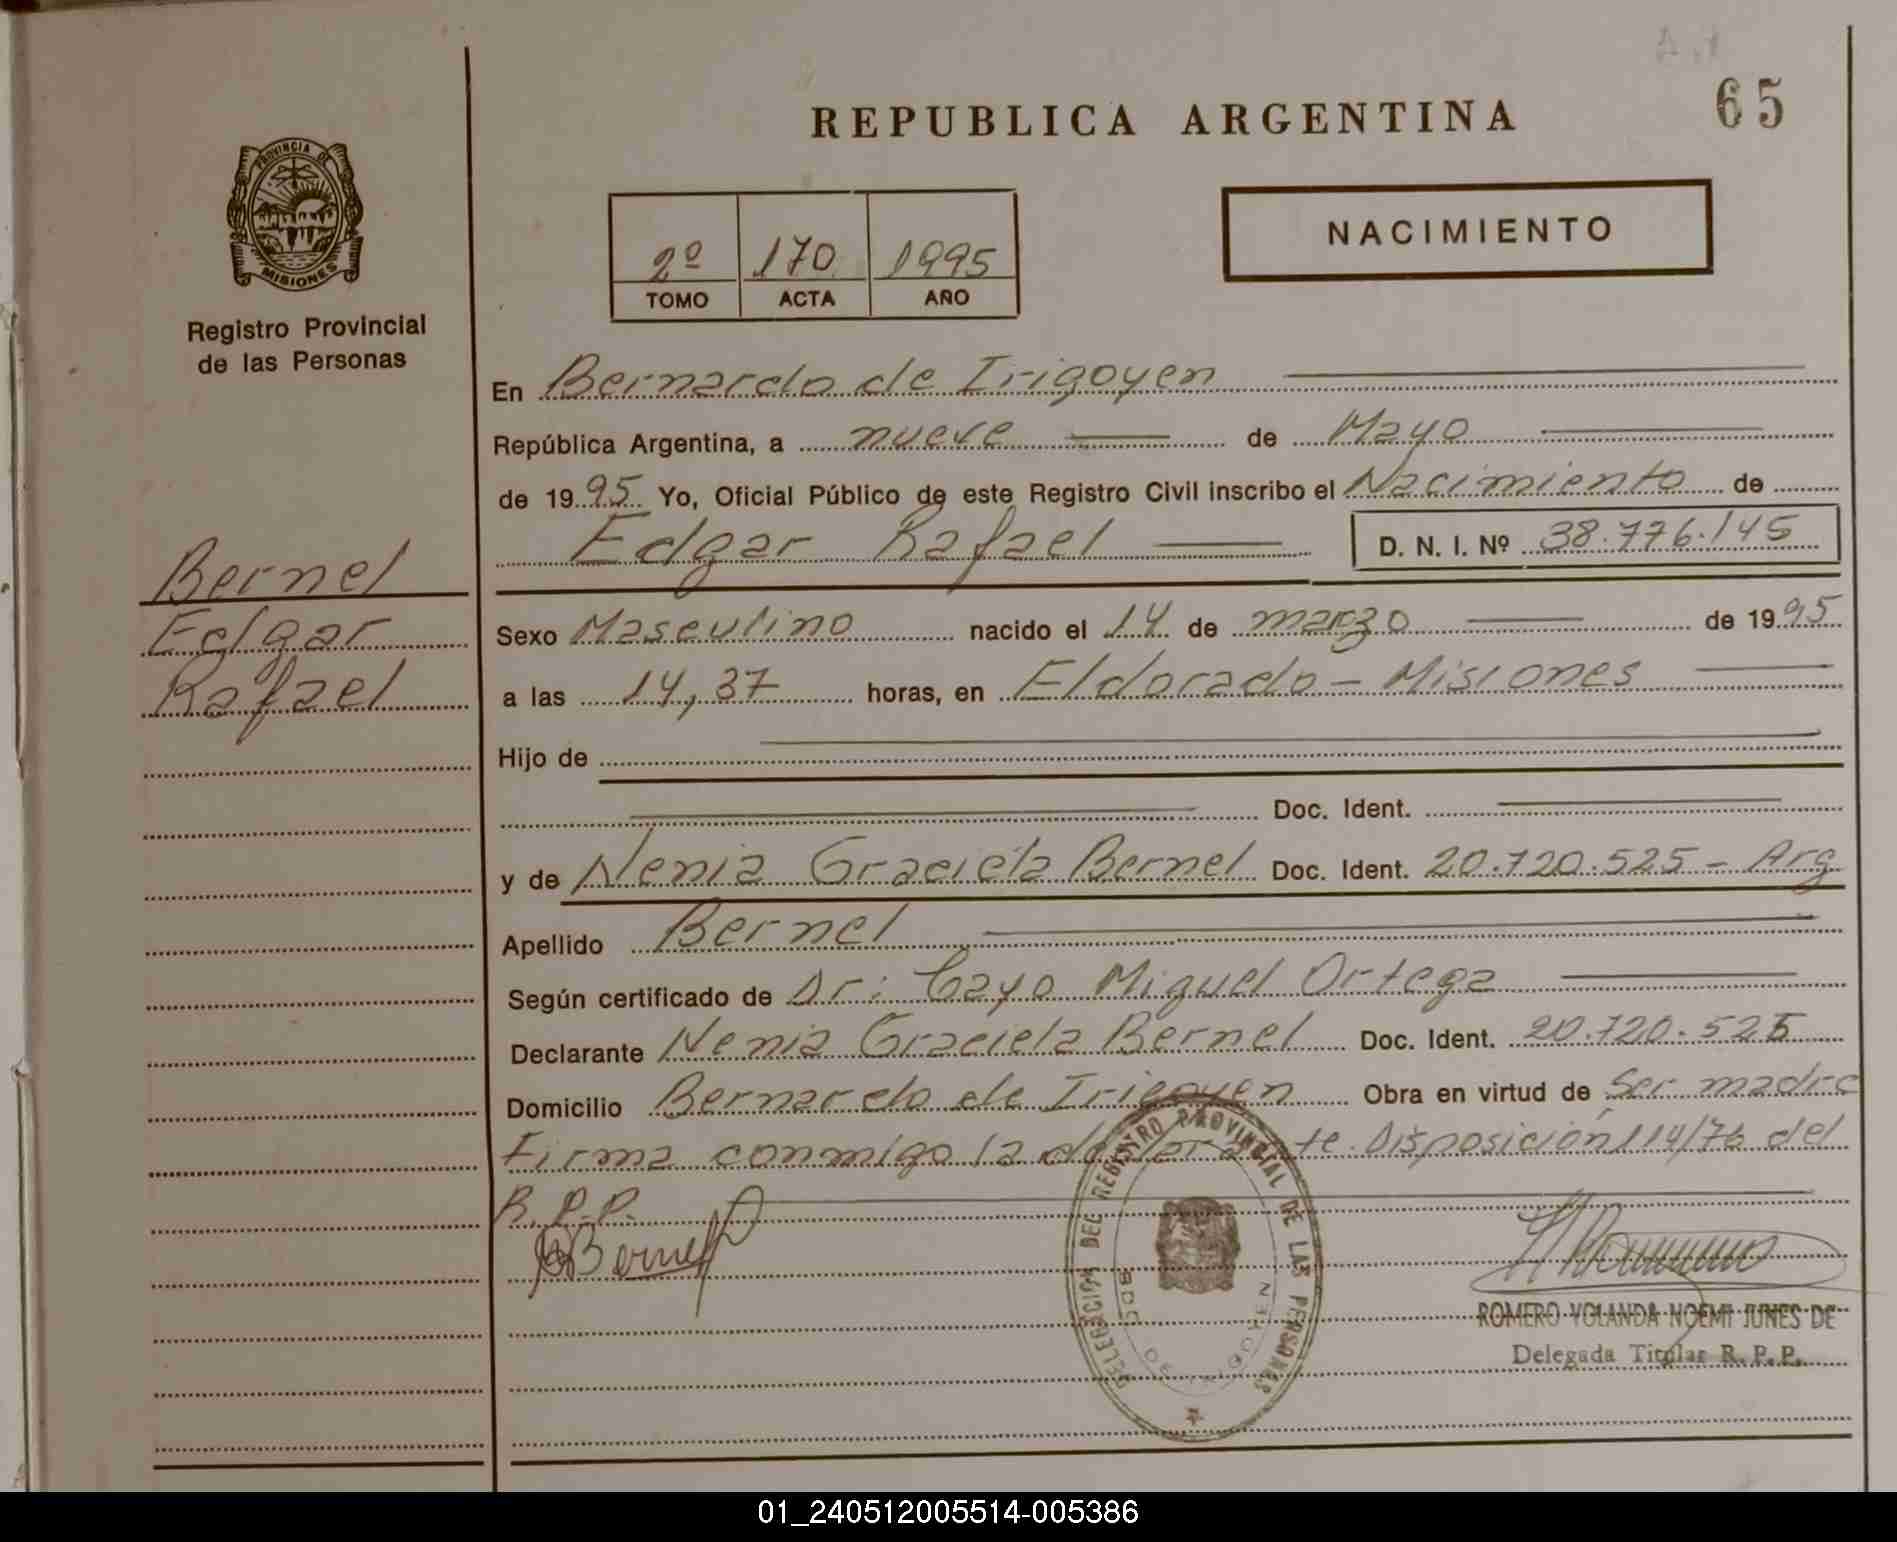 65
REPUBLICA ARGENTINA
PROVINCIA DE
MISIONES
Registro Provincial
de las Personas
2º 170 1995
TOMO ACTA AÑO
NACIMIENTO
En Bernardo de Irigoyen
República Argentina, a nueve de Mayo
de 1995 Yo, Oficial Público de este Registro Civil inscribo el Nacimiento de
Edgar Rafael D. N. I. Nº 38.776.145
Bernel
Edgar
Rafael
Sexo Masculino nacido el 14 de marzo de 1995
a las 14,37 horas, en Eldorado - Misiones
Hijo de
Doc. Ident.
y de Nenia Graciela Bernel Doc. Ident. 20.720.525 - Arg
Apellido Bernel
Según certificado de Dr: Cayo Miguel Ortega
Declarante Nenia Graciela Bernel Doc. Ident. 20.720.525
Domicilio Bernardo de Irigoyen Obra en virtud de Ser madre
Firma conmigo la declarante. Disposición 114/76 del
R.P.P.
Bernel
DELEGACION DEL REGISTRO PROVINCIAL DE LAS PERSONAS
BDO. DE IRIGOYEN
ROMERO YOLANDA NOEMI JUNES DE
Delegada Titular R.P.P.
01_240512005514-005386